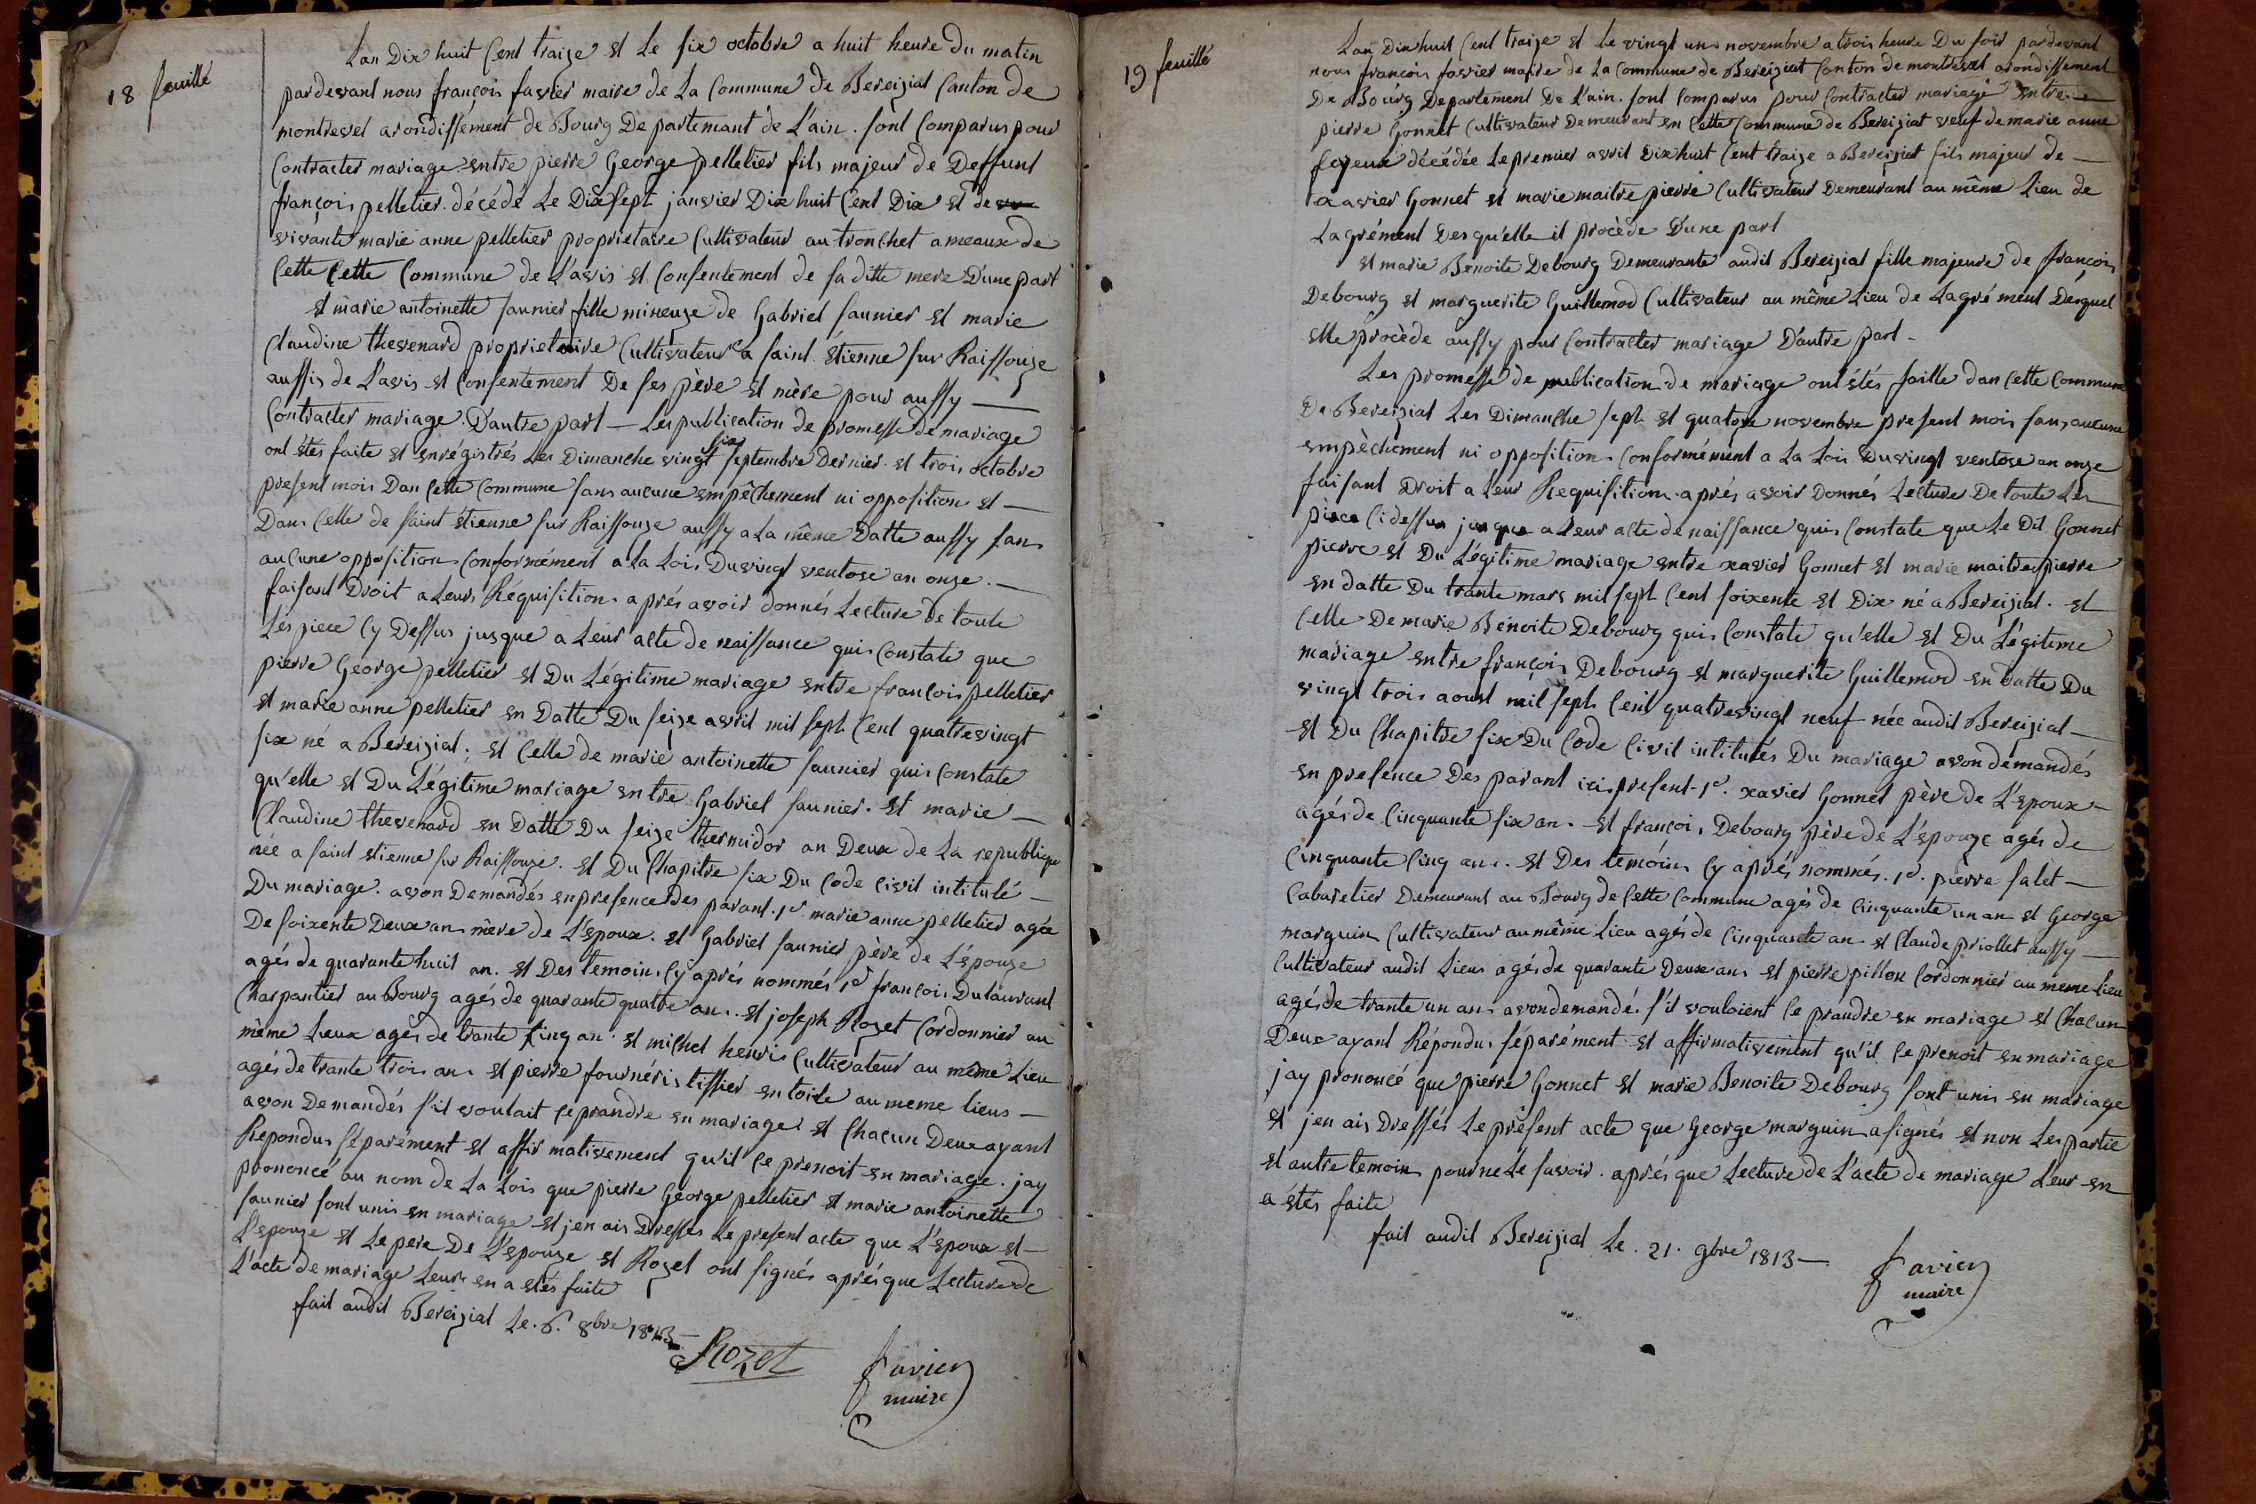 18 feuillé
Lan Dix huit Cent traize et Le six octobre a huit heure Du matin
pardevant nous françois favier maire de La Commune de Bereiziat Canton de
montrevel arondissement de Bourg De partemant de L'ain. sont Comparus pour
Contracter mariage entre pierre George pelletier fils majeur de Deffunt
françois pelletier décédé Le Dix sept janvier Dix huit Cent Dix et de
vivante marie anne pelletier proprietaire Cultivateur au tronchet ameaux de
Cette Cette Commune de L'avis et Consentement de sa ditte mere D'une part
et marie antoinette saunier fille mineuze de Gabriel saunier et marie
Claudine thevenard proprietaire Cultivateur a saint Etienne sur Raissouze
aussis de L'avis et Consentement De ses père et mère pour aussy —
Contracter mariage D'autre part — Les publication de promesse de mariage
ont étés faite et enrégistrés Les Dimanche vingt six septembre Dernier et trois octobre
present mois Dan Cette Commune sans aucune empêchement ni opposition et —
Dans Celle de saint etienne sur Raissouze aussy a La même Datte aussy sans
aucune opposition Conformément a La Lois Du vingt ventose an onze. —
faisant Droit a Leurs Réquisition aprés avoir donnés Lecture De toute
Les piece Cy Dessus jusque a Leur acte de naissance quis Constate que
pierre George pelletier et Du Légitime mariage entre françois pelletier
et marie anne pelletier en Datte Du seize avril mil sept Cent quatre vingt
six né a Bereiziat; et Celle de marie antoinette saunier quis constate
qu'elle et Du Légitime mariage entre Gabriel saunier et marie —
Claudine thevenard en Datte Du seize thermidor an Deux de La republique
née a saint etienne sur Raissouze. et Du Chapitre six Du Code Civil intitulé —
Du mariage. avon Demandés en presence Des parant. 1er marie anne pelletier agée
De soixente Deux an mère de L'epoux. et Gabriel saunier père de L'épouze
agés de quarante huit an. et Des temoins Cy aprés nommés 1er françois Dutauvant
Charpantier au Bourg agés de quarante quatre an. et joseph Rozet Cordonnier au
même Lieux agés de trante Cinq an. et michel henris Cultivateur au même Lieu
agés de trante trois ans et pierre fournéris tissier en toile au meme lieus —
avon Demandés s'il voulait Ce prandre en mariage et Chacun Deux ayant
Repondus séparément et affirmativement qu'il Ce prenoit en mariage. jay
prononcé au nom de La Lois que pierre George pelletier et marie antoinette
saunier sont unis en mariage et j'en ais Dressés Le present acte que L'epoux et —
L'epouze et Le pere De L'epouze et Rozet ont signés aprés que Lecture de
L'acte de mariage Leurs en a etés faite
fait audit Bereiziat Le. 6. 8bre 1813 —
Rozet
favier
maire
19 feuillé
Lan Dix huit Cent traize et Le vingt uns novembre a trois heure Du soir pardevant
nous françois favier maire de La Commune de Bereiziat Canton de montrevel arondissement
De Bourg Departement De L'ain. sont Comparus pour Contracter mariage entre —
pierre Gonnet Cultivateur Demeurant en Cette Commune de Bereiziat veuf de marie anne
décédée Le premier avril Dix huit Cent traize a Bereiziat fils majeur de —
xavier Gonnet et marie maitre pierre Cultivateur Demeurant au même Lieu de
Lagrément Des qu'elle il procède D'une part
et marie Benoite Debourg Demeurante audit Bereiziat fille majeure de françois
Debourg et marguerite Guillemod Cultivateur au même Lieu de Lagrément Desquel
elle procède aussy pour Contracter mariage D'autre part —
Les promesse de publication de mariage ont étés faitte dan Cette Commune
De Bereiziat Les Dimanche sept et quatorze novembre present mois sans aucune
empêchement ni opposition Conformément a La Lois Du vingt ventose an onze
faisant Droit a Leur Requisition aprés avoir Donnés Lecture De toute Les —
pieces Ci dessus jusque a Leur acte de naissance quis Constate que Le Dit Gonnet
pierre et Du Légitime mariage entre xavier Gonnet et marie maitre pierre
en datte Du trante mars mil sept Cent soixente et Dix né a Bereiziat. et
Celle De marie Benoite Debourg quis Constate qu'elle et Du Légitime
mariage entre françois Debourg et marguerite Guillemod en Datte Du
vingt trois aoust mil sept Cent quatre vingt neuf née audit Bereiziat —
et Du Chapitre six Du Code Civil intitulés Du mariage avon demandés
en presence Des parant ici present. 1er. xavier Gonnet père de L'epoux —
agés de Cinquante six an. et françois Debourg père de L'épouze agés de
Cinquante Cinq ans. et Des temoins Cy aprés nommés. 1er. pierre salet —
Cabaretier Demeurant au Bourg de Cette Commune agés de Cinquante un an et George
marguin Cultivateur au même Lieu agés de Cinquante an et Claude priollet aussy —
Cultivateur audit Lieus agés de quarante Deux ans et pierre pillon Cordonnier au meme Lieu
agés de trante un ans avon demandés s'il vouloient Ce prandre en mariage et Chacun
Deux ayant Répondus séparément et affirmativement qu'il Ce prenoit en mariage
jay prononcé que pierre Gonnet et marie Benoite Debourg sont unis en mariage
et jen ais Dressés Le présent acte que George marguin a signés et non Les partie
et autre temoins pour ne Le savoir. aprés que Lecture de L'acte de mariage Leur en
a étés faite
fait audit Bereiziat Le. 21. 9bre 1813 —
favier
maire